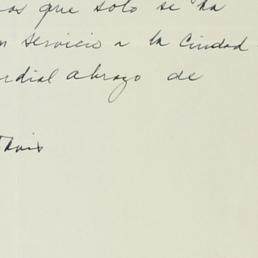 os que solo se ha
n servicio a la Ciudad
rdial abrazo de